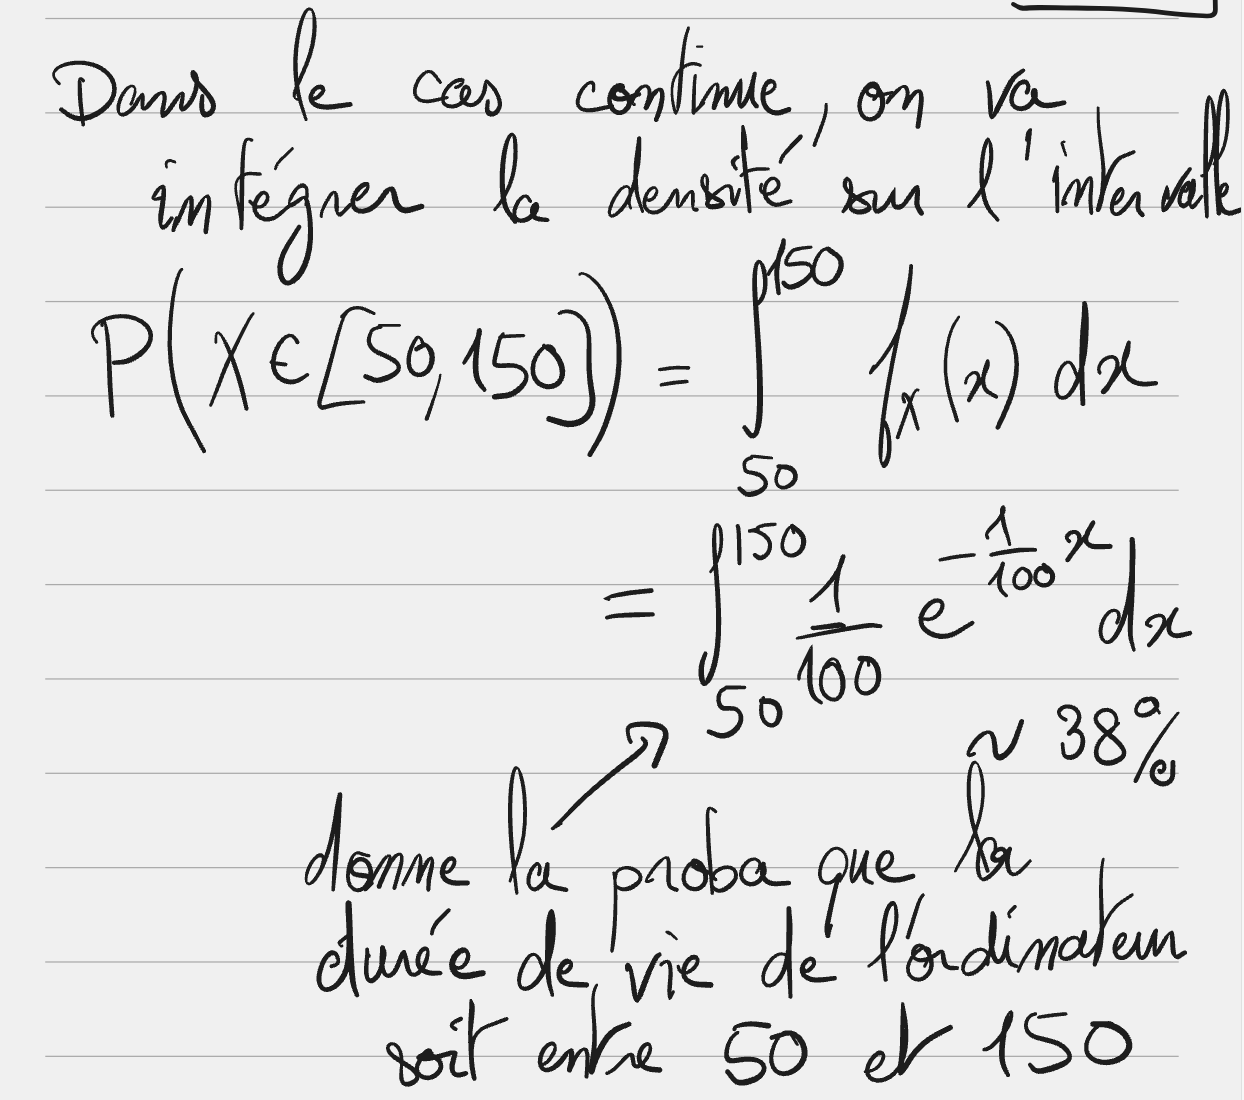 Dans le cas continue, on va
intégrer la densité sur l'intervalle
P(X ∈ [50, 150]) = ∫_{50}^{150} f_X(x) dx
= ∫_{50}^{150} \frac{1}{100} e^{-\frac{1}{100}x} dx
~ 38%
donne la proba que la
durée de vie de l'ordinateur
soit entre 50 et 150